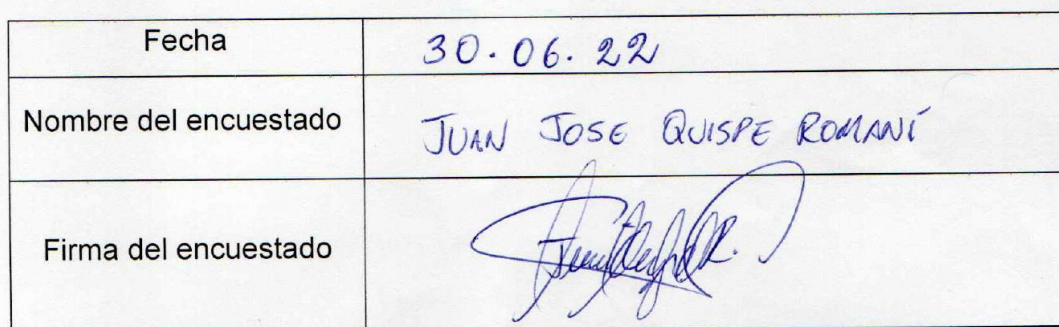 Fecha 30.06.22
Nombre del encuestado JUAN JOSE QUISPE ROMANÍ
Firma del encuestado